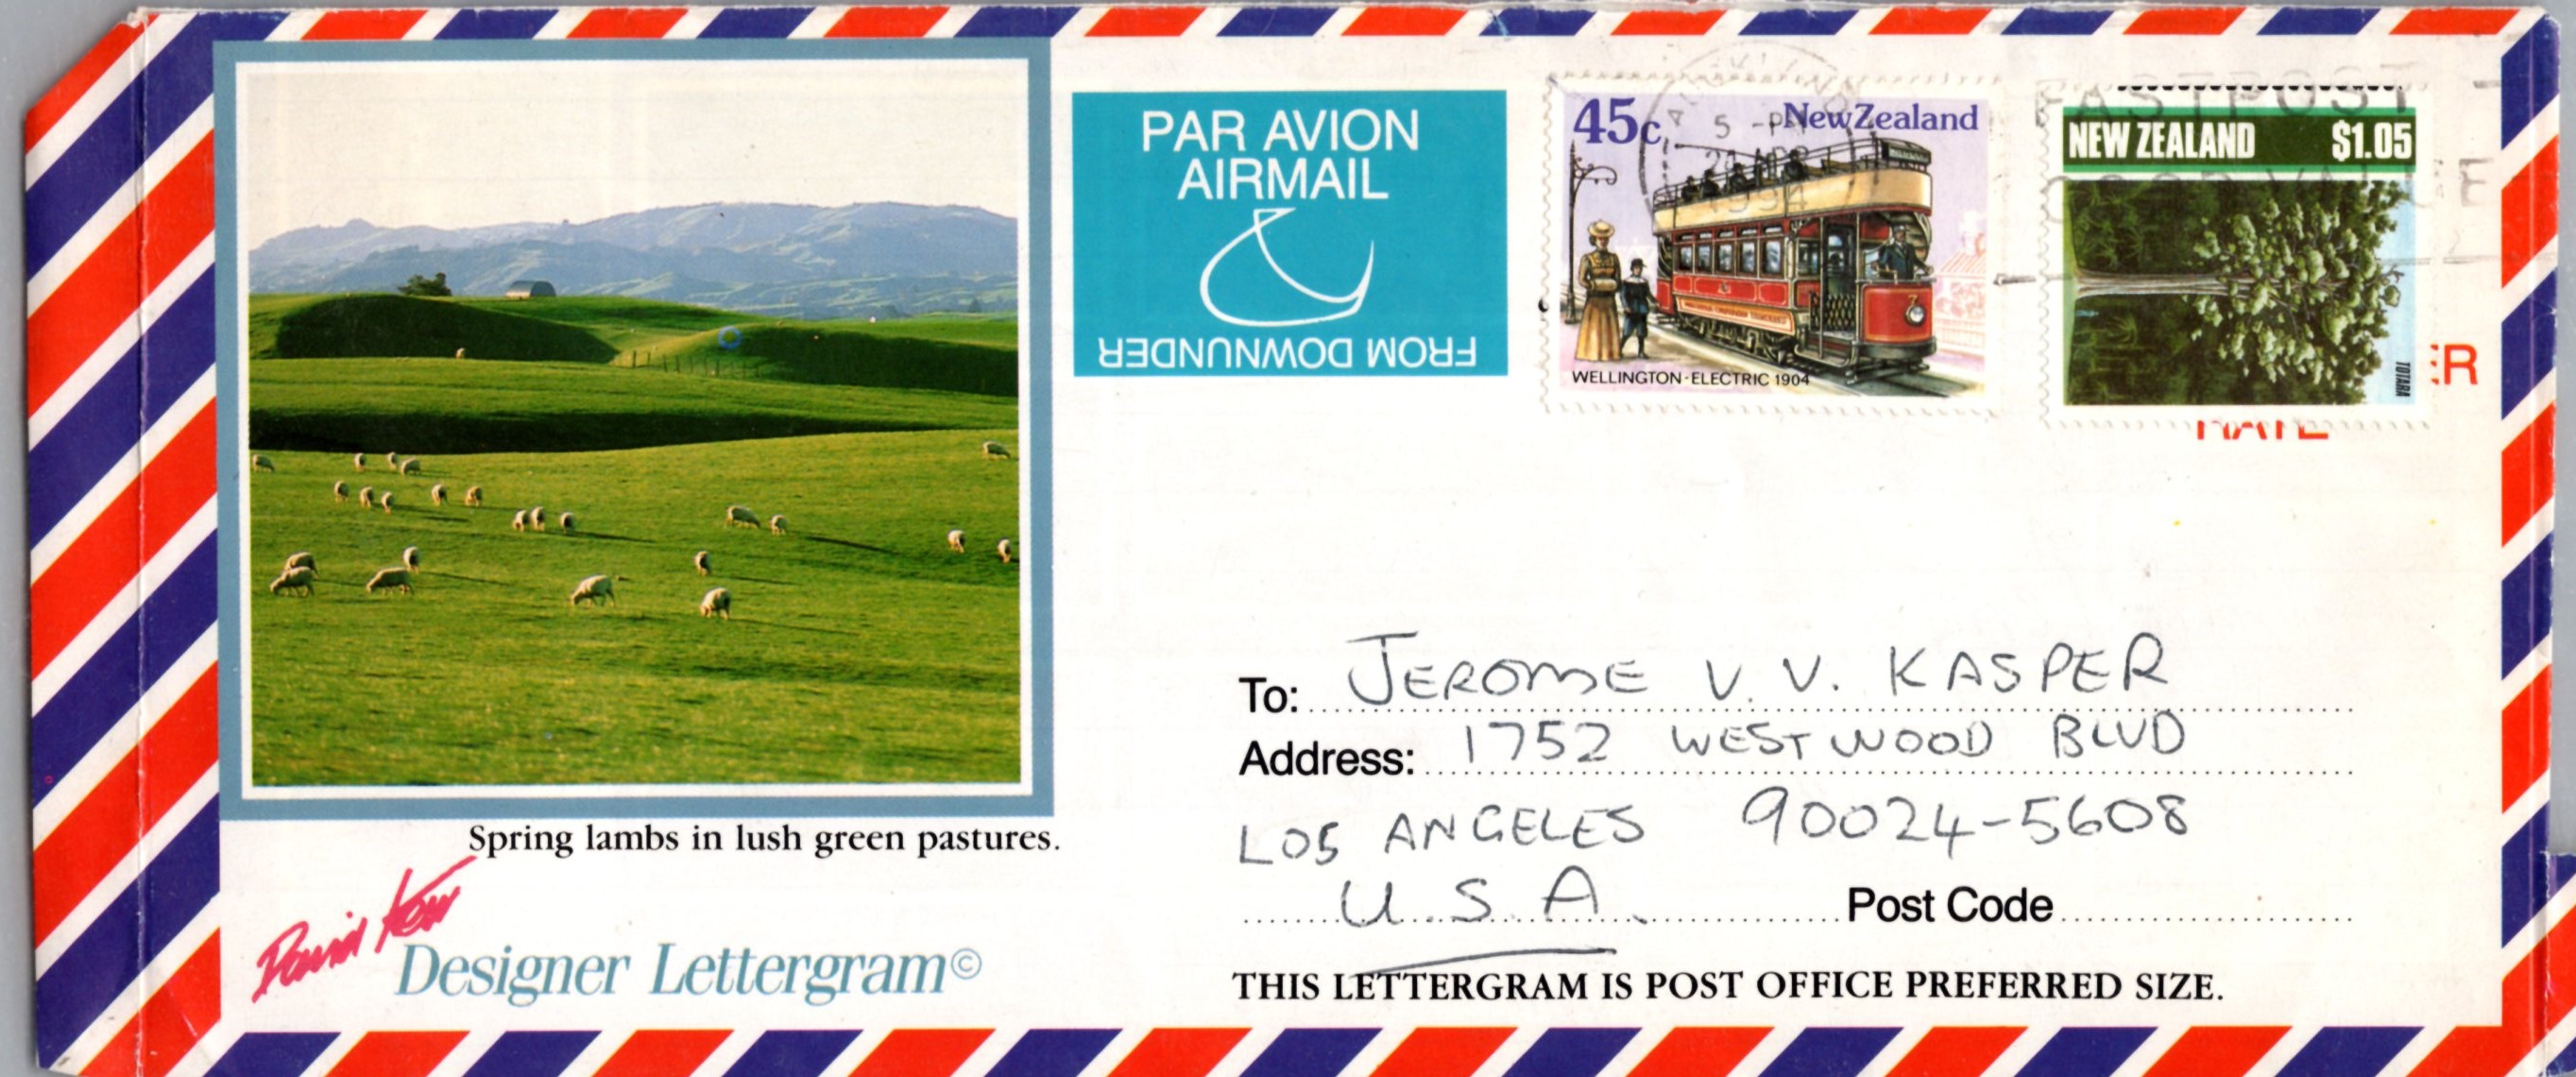 PAR AVION
AIRMAIL
FROM DOWNUNDER
45c New Zealand
5 - PM
1994
WELLINGTON - ELECTRIC 1904
FASTPOST
NEW ZEALAND $1.05
TOTARA
RATE
Spring lambs in lush green pastures.
David Kow
Designer Lettergram©
To: JEROME V. V. KASPER
Address: 1752 WESTWOOD BLVD
LOS ANGELES 90024-5608
U.S.A. Post Code
THIS LETTERGRAM IS POST OFFICE PREFERRED SIZE.